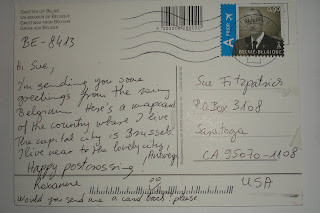 GROETEN UIT BELGIË
UN BONJOUR DE BELGIQUE
GREETINGS FROM BELGIUM
GRÜSSE AUS BELGIEN
BE-8413
Hi Sue,
I'm sending you some
greetings from the rainy
Belgium. Here's a mapcard
of the country where I live.
The capital city is Brussels.
I live near to the lovely city,
Antwerp
Happy postcrossing,
Roxanne
Would you send me a card back? please.
A PRIOR
0,90
BELGIE-BELGIQUE
Sue Fitzpatrick
P.O Box 3108
Saratoga
CA 95070-1108
USA